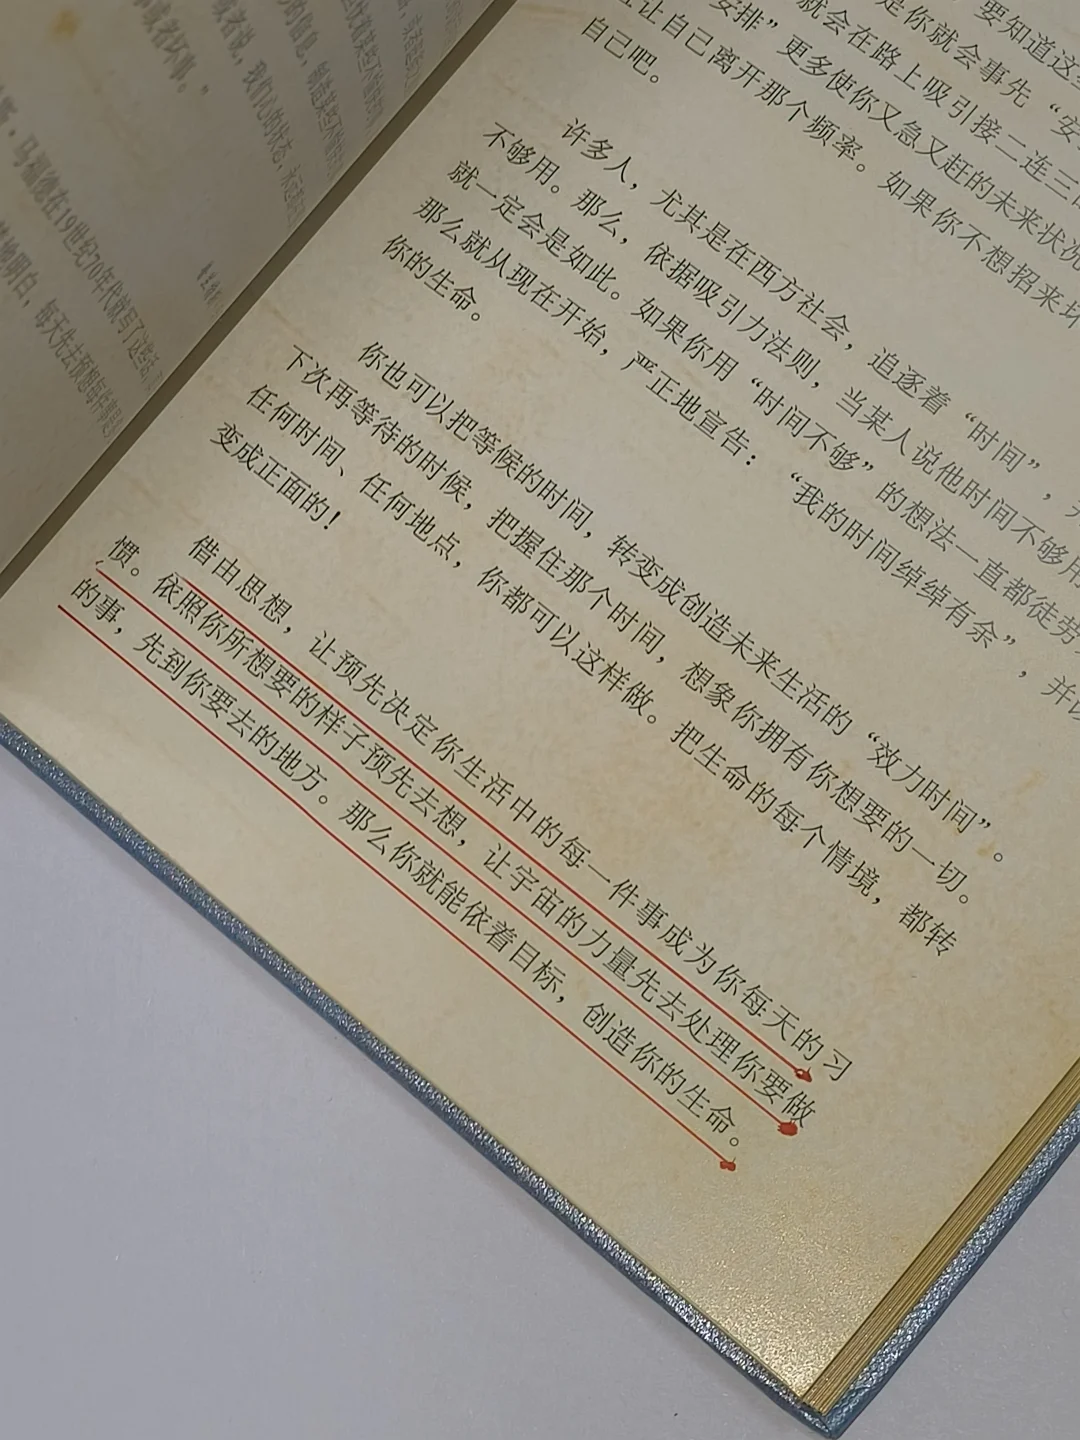 要知道这
是你就会事先“安
就会在路上吸引接二连三
安排”更多使你又急又赶的未来状况
让自己离开那个频率。如果你不想招来坏
自己吧。
许多人，尤其是在西方社会，追逐着“时间”，
不够用。那么，依据吸引力法则，当某人说他时间不够用
就一定会是如此。如果你用“时间不够”的想法一直都徒劳
那么就从现在开始，严正地宣告：“我的时间绰绰有余”，并
你的生命。
你也可以把等候的时间，转变成创造未来生活的“效力时间”。
下次再等待的时候，把握住那个时间，想象你拥有你想要的一切。
任何时间、任何地点，你都可以这样做。把生命的每个情境，都转
变成正面的！
借由思想，让预先决定你生活中的每一件事成为你每天的习
惯。依照你所想要的样子预先去想，让宇宙的力量先去处理你要做
的事，先到你要去的地方。那么你就能依着目标，创造你的生命。
或者坏事。”
或者说，我们心的状态，
马福德在19世纪70年代就写了这些话
明白，每天先去预想每件事